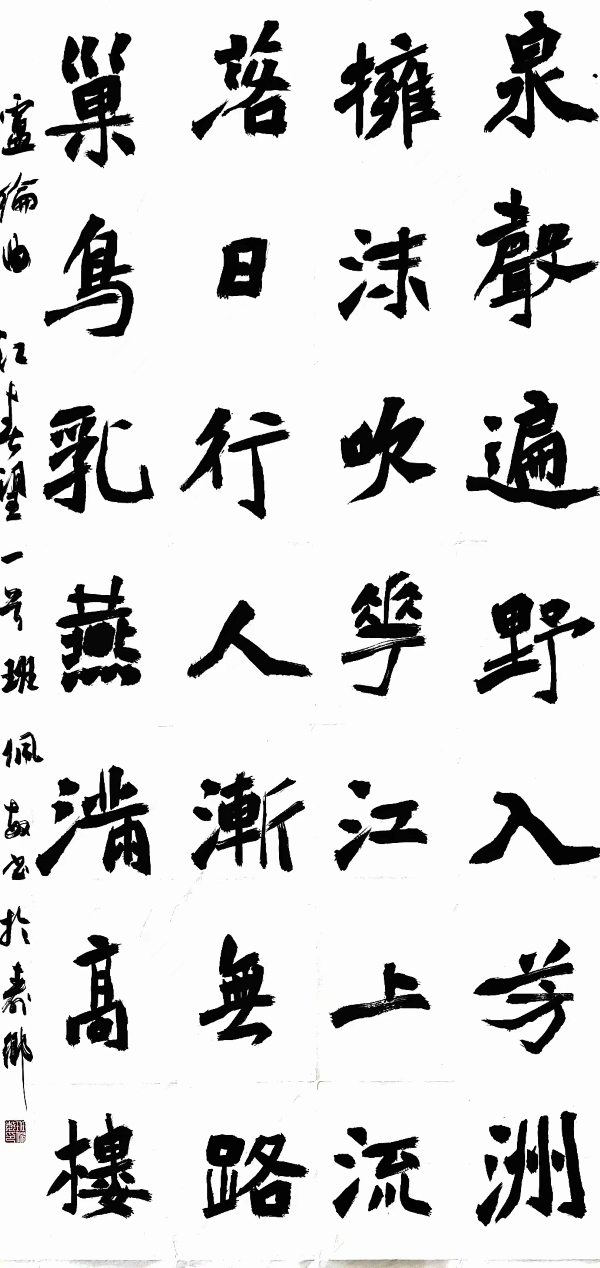 泉聲遍野入芳洲
擁沫吹華江上流
落日行人漸無路
巢鳥乳燕滿高樓
盧綸曲江春望一首 班佩敏书於壽鄉